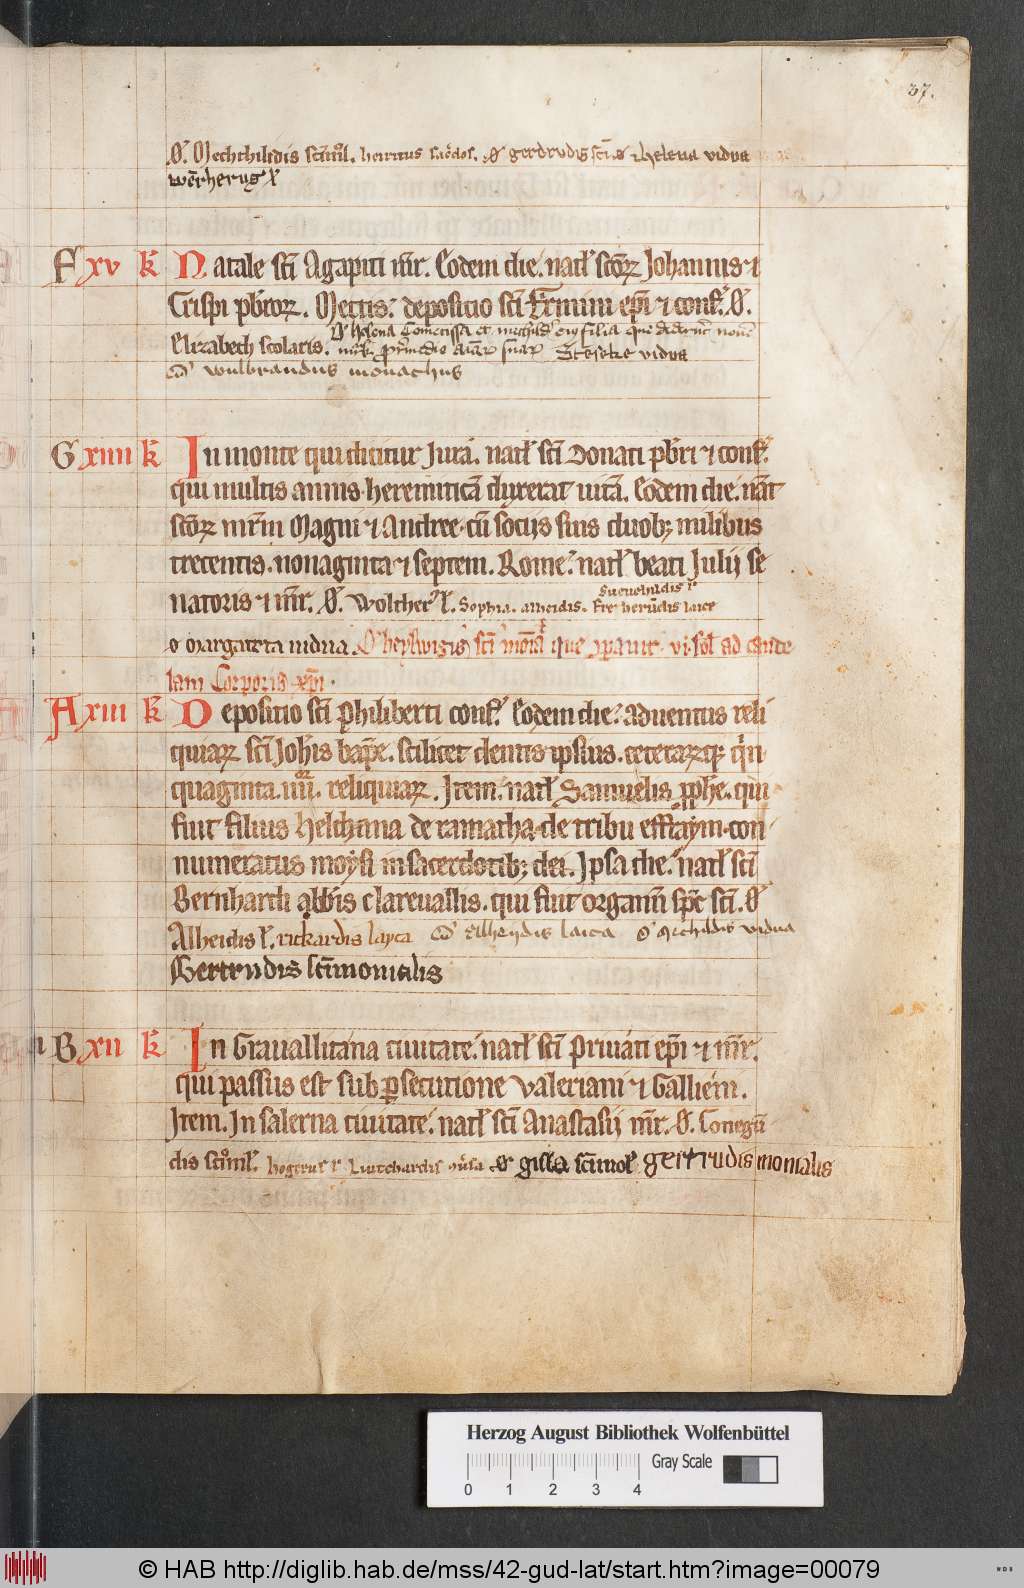 37.
Ꝋ. Mechthildis scīmol̄. henricus sac̄dos. Ꝋ gerdrudis scīꝊ helena vidua
wērherus ł
F xv k̄ Natale sc̄i Agapiti m̄r. Eodem die. nat̄l sc̄oꝝ Johannis ⁊
Crispi pb̄roꝝ. Mettis. depositio sc̄i Firmini ep̄i ⁊ conf̄. Ꝋ.
Ꝋ helena Cometissa et mechild' eiꝰ filia que dederūt
Elizabeth scolaris. Steseke vidua
Ꝋ wulbrandus monachus
G xiiii k̄ In monte qui dicitur Jura. nat̄l sc̄i Donati pb̄ri ⁊ conf̄.
qui multis annis heremiticā dyxerat uitā. Eodem die. nat̄
sc̄oꝝ mr̄m Magni ⁊ Andree cū socijs suis duobꝫ milibus
trecentis. nonaginta ⁊ septem. Rome. nat̄l beati Julij se
natoris ⁊ m̄r. Ꝋ. Wolther' ł. Sophia. alheidis. laice
o margareta uidua. Ꝋ heylwigis sc̄i mōia que ꝓcauit vi sol ad cande
lam Corporis xp̄i.
A xiii k̄ Depositio sc̄i Philiberti conf̄. Eodem die. aduentus reli
quiaꝝ sc̄i Joh̄is bap̄te. scilicet dentis ipsius. ceteraꝝqꝫ qͥn
quaginta. iiii. reliquiaꝝ. Item. nat̄l Samuelis ꝓph̄e. qui
fuit filius helchana de ramatha de tribu effraym. con
numeratus moysi in sacerdotibꝫ dei. Ipsa die. nat̄l sc̄i
Bernhardi abb̄is clareuallis. qui fuit organū sp̄c sc̄i. Ꝋ
Alheidis ł. rickardis layca Ꝋ Alheydis laica Ꝋ Mechildis vidua
Gertrudis sc̄imonialis
B xii k̄ In Grauallitana ciuitate. nat̄l sc̄i Priuati ep̄i ⁊ m̄r.
qui passus est sub ꝑsecutione Valeriani ⁊ Gallieni.
Item. In salerna ciuitate. nat̄l sc̄i Anastasij m̄r. Ꝋ. Conegū
dis sc̄imol̄. Luitchardis Ꝋ gisla sc̄imol̄ gertrudis monialis
Herzog August Bibliothek Wolfenbüttel
Gray Scale
0 1 2 3 4
© HAB http://diglib.hab.de/mss/42-gud-lat/start.htm?image=00079